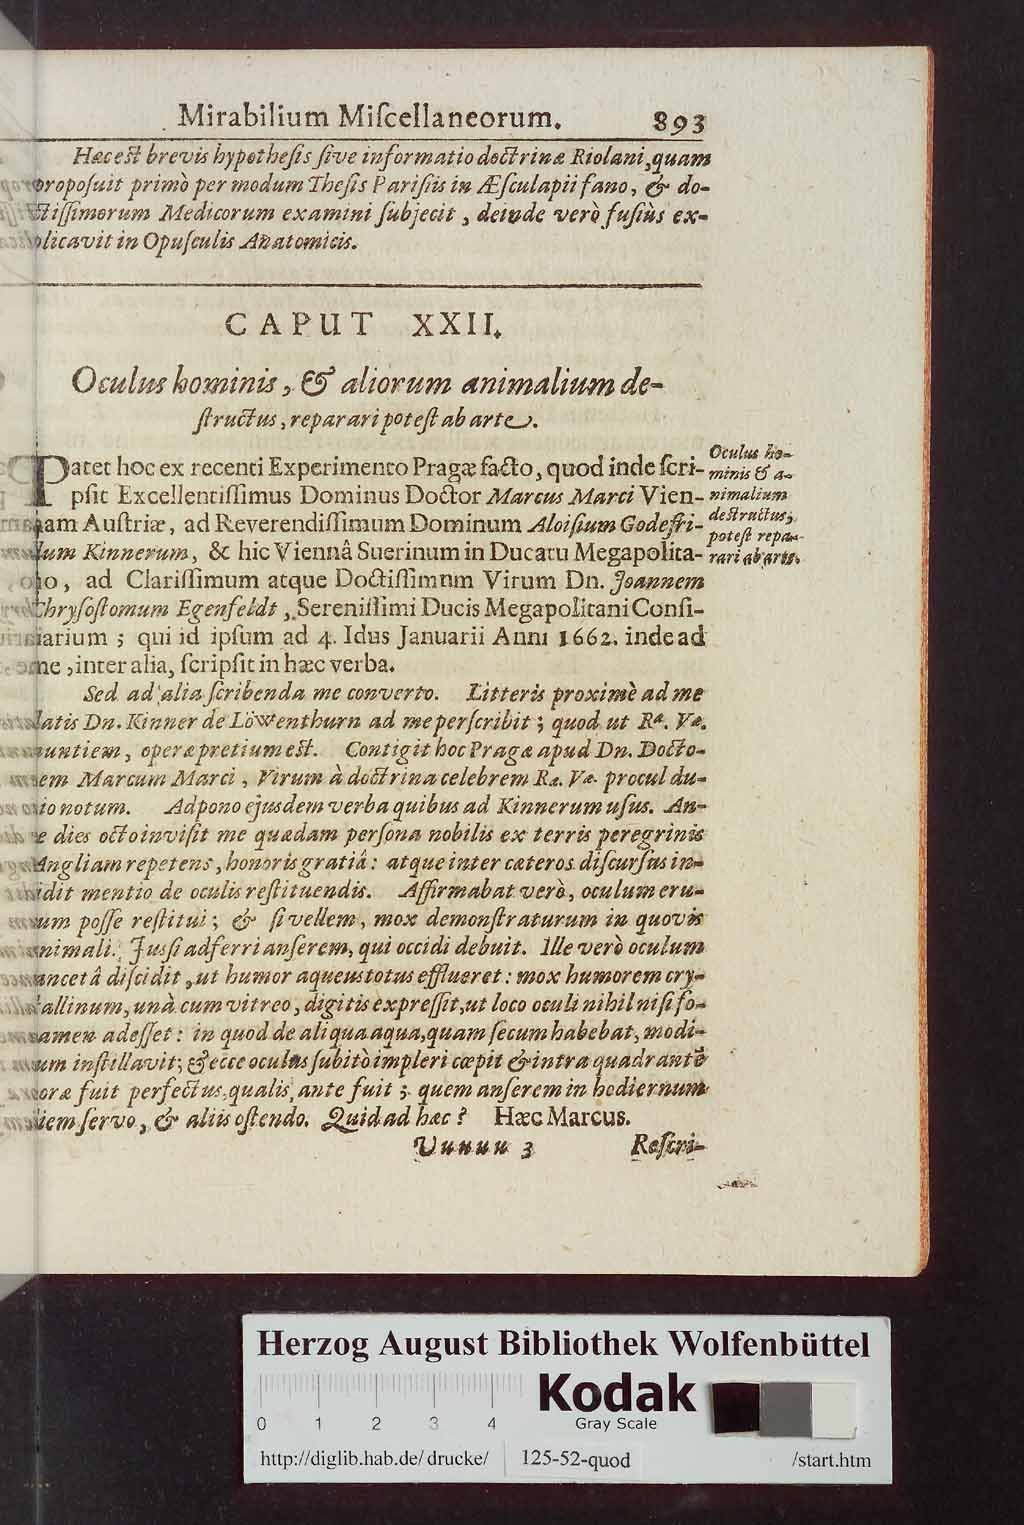 Mirabilium Miſcellaneorum. 893
Hæc eſt brevis hypotheſis ſive informatio doctrinæ Riolani, quam
propoſuit primò per modum Theſis Pariſiis in Æſculapii fano, & do-
ctiſſimorum Medicorum examini ſubjecit, deinde verò fuſiùs ex-
plicavit in Opuſculis Anatomicis.
CAPUT XXII.
Oculus hominis, & aliorum animalium de-
ſtructus, reparari poteſt ab arte.
Patet hoc ex recenti Experimento Pragæ facto, quod inde ſcri-
pſit Excellentiſſimus Dominus Doctor Marcus Marci Vien-
nam Auſtriæ, ad Reverendiſſimum Dominum Aloiſium Godefri-
dum Kinnerum, & hic Viennâ Suerinum in Ducatu Megapolita-
no, ad Clariſſimum atque Doctiſſimum Virum Dn. Joannem
Chryſoſtomum Egenfeldt, Sereniſſimi Ducis Megapolitani Conſi-
liarium; qui id ipſum ad 4. Idus Januarii Anni 1662. inde ad
me, inter alia, ſcripſit in hæc verba.
Oculus ho-
minis & a-
nimalium
deſtructus,
poteſt repa-
rari ab arte.
Sed ad alia ſcribenda me converto. Litteris proximè ad me
datis Dn. Kinner de Löwenthurn ad me perſcribit; quod ut Ræ. Væ.
nuntiem, operæpretium eſt. Contigit hoc Pragæ apud Dn. Docto-
rem Marcum Marci, Virum à doctrina celebrem Ræ. Væ. procul du-
bio notum. Adpono ejusdem verba quibus ad Kinnerum uſus. An-
te dies octo inviſit me quædam perſona nobilis ex terris peregrinis
Angliam repetens, honoris gratiâ: atque inter cæteros diſcurſus in-
cidit mentio de oculis reſtituendis. Affirmabat verò, oculum eru-
tum poſſe reſtitui; & ſi vellem, mox demonſtraturum in quovis
animali. Juſſi adferri anſerem, qui occidi debuit. Ille verò oculum
lancetâ diſcidit, ut humor aqueus totus efflueret: mox humorem cry-
ſtallinum, unà cum vitreo, digitis expreſſit, ut loco oculi nihil niſi fo-
ramen adeſſet: in quod de aliqua aqua, quam ſecum habebat, modi-
cum inſtillavit; & ecce oculus ſubitò impleri cœpit & intra quadrantē
horæ fuit perfectus, qualis ante fuit; quem anſerem in hodiernum
diem ſervo, & aliis oſtendo. Quid ad hæc? Hæc Marcus.
Uuuuu 3 Reſcri-
Herzog August Bibliothek Wolfenbüttel
0 1 2 3 4
Kodak
Gray Scale
http://diglib.hab.de/drucke/ 125-52-quod /start.htm